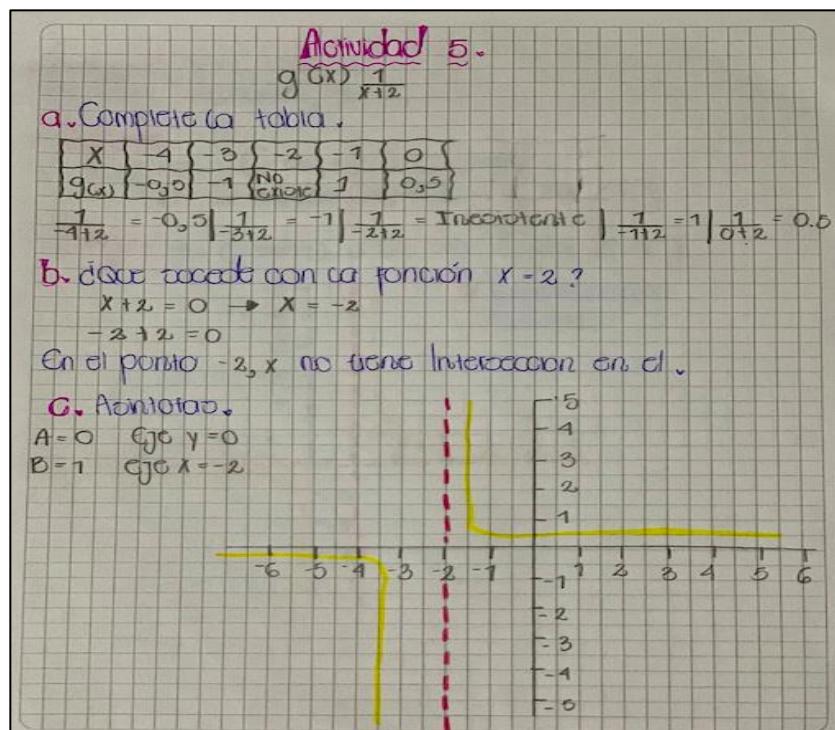 Actividad 5.
g(x) 1/x+2
a. Complete la tabla.
X -4 -3 -2 -1 0
g(x) -0,5 -1 NO existe 1 0,5
1/-4+2 = -0,5 | 1/-3+2 = -1 | 1/-2+2 = Inexistente | 1/-1+2 = 1 | 1/0+2 = 0.5
b. ¿Que sucede con la función x-2?
x+2 = 0 → x = -2
-2+2 = 0
En el punto -2, x no tiene Intersección en el.
c. Asintotas.
A=0 eje y=0
B=1 eje x=-2
5
4
3
2
1
-6 -5 -4 -3 -2 -1 1 2 3 4 5 6
-1
-2
-3
-4
-5